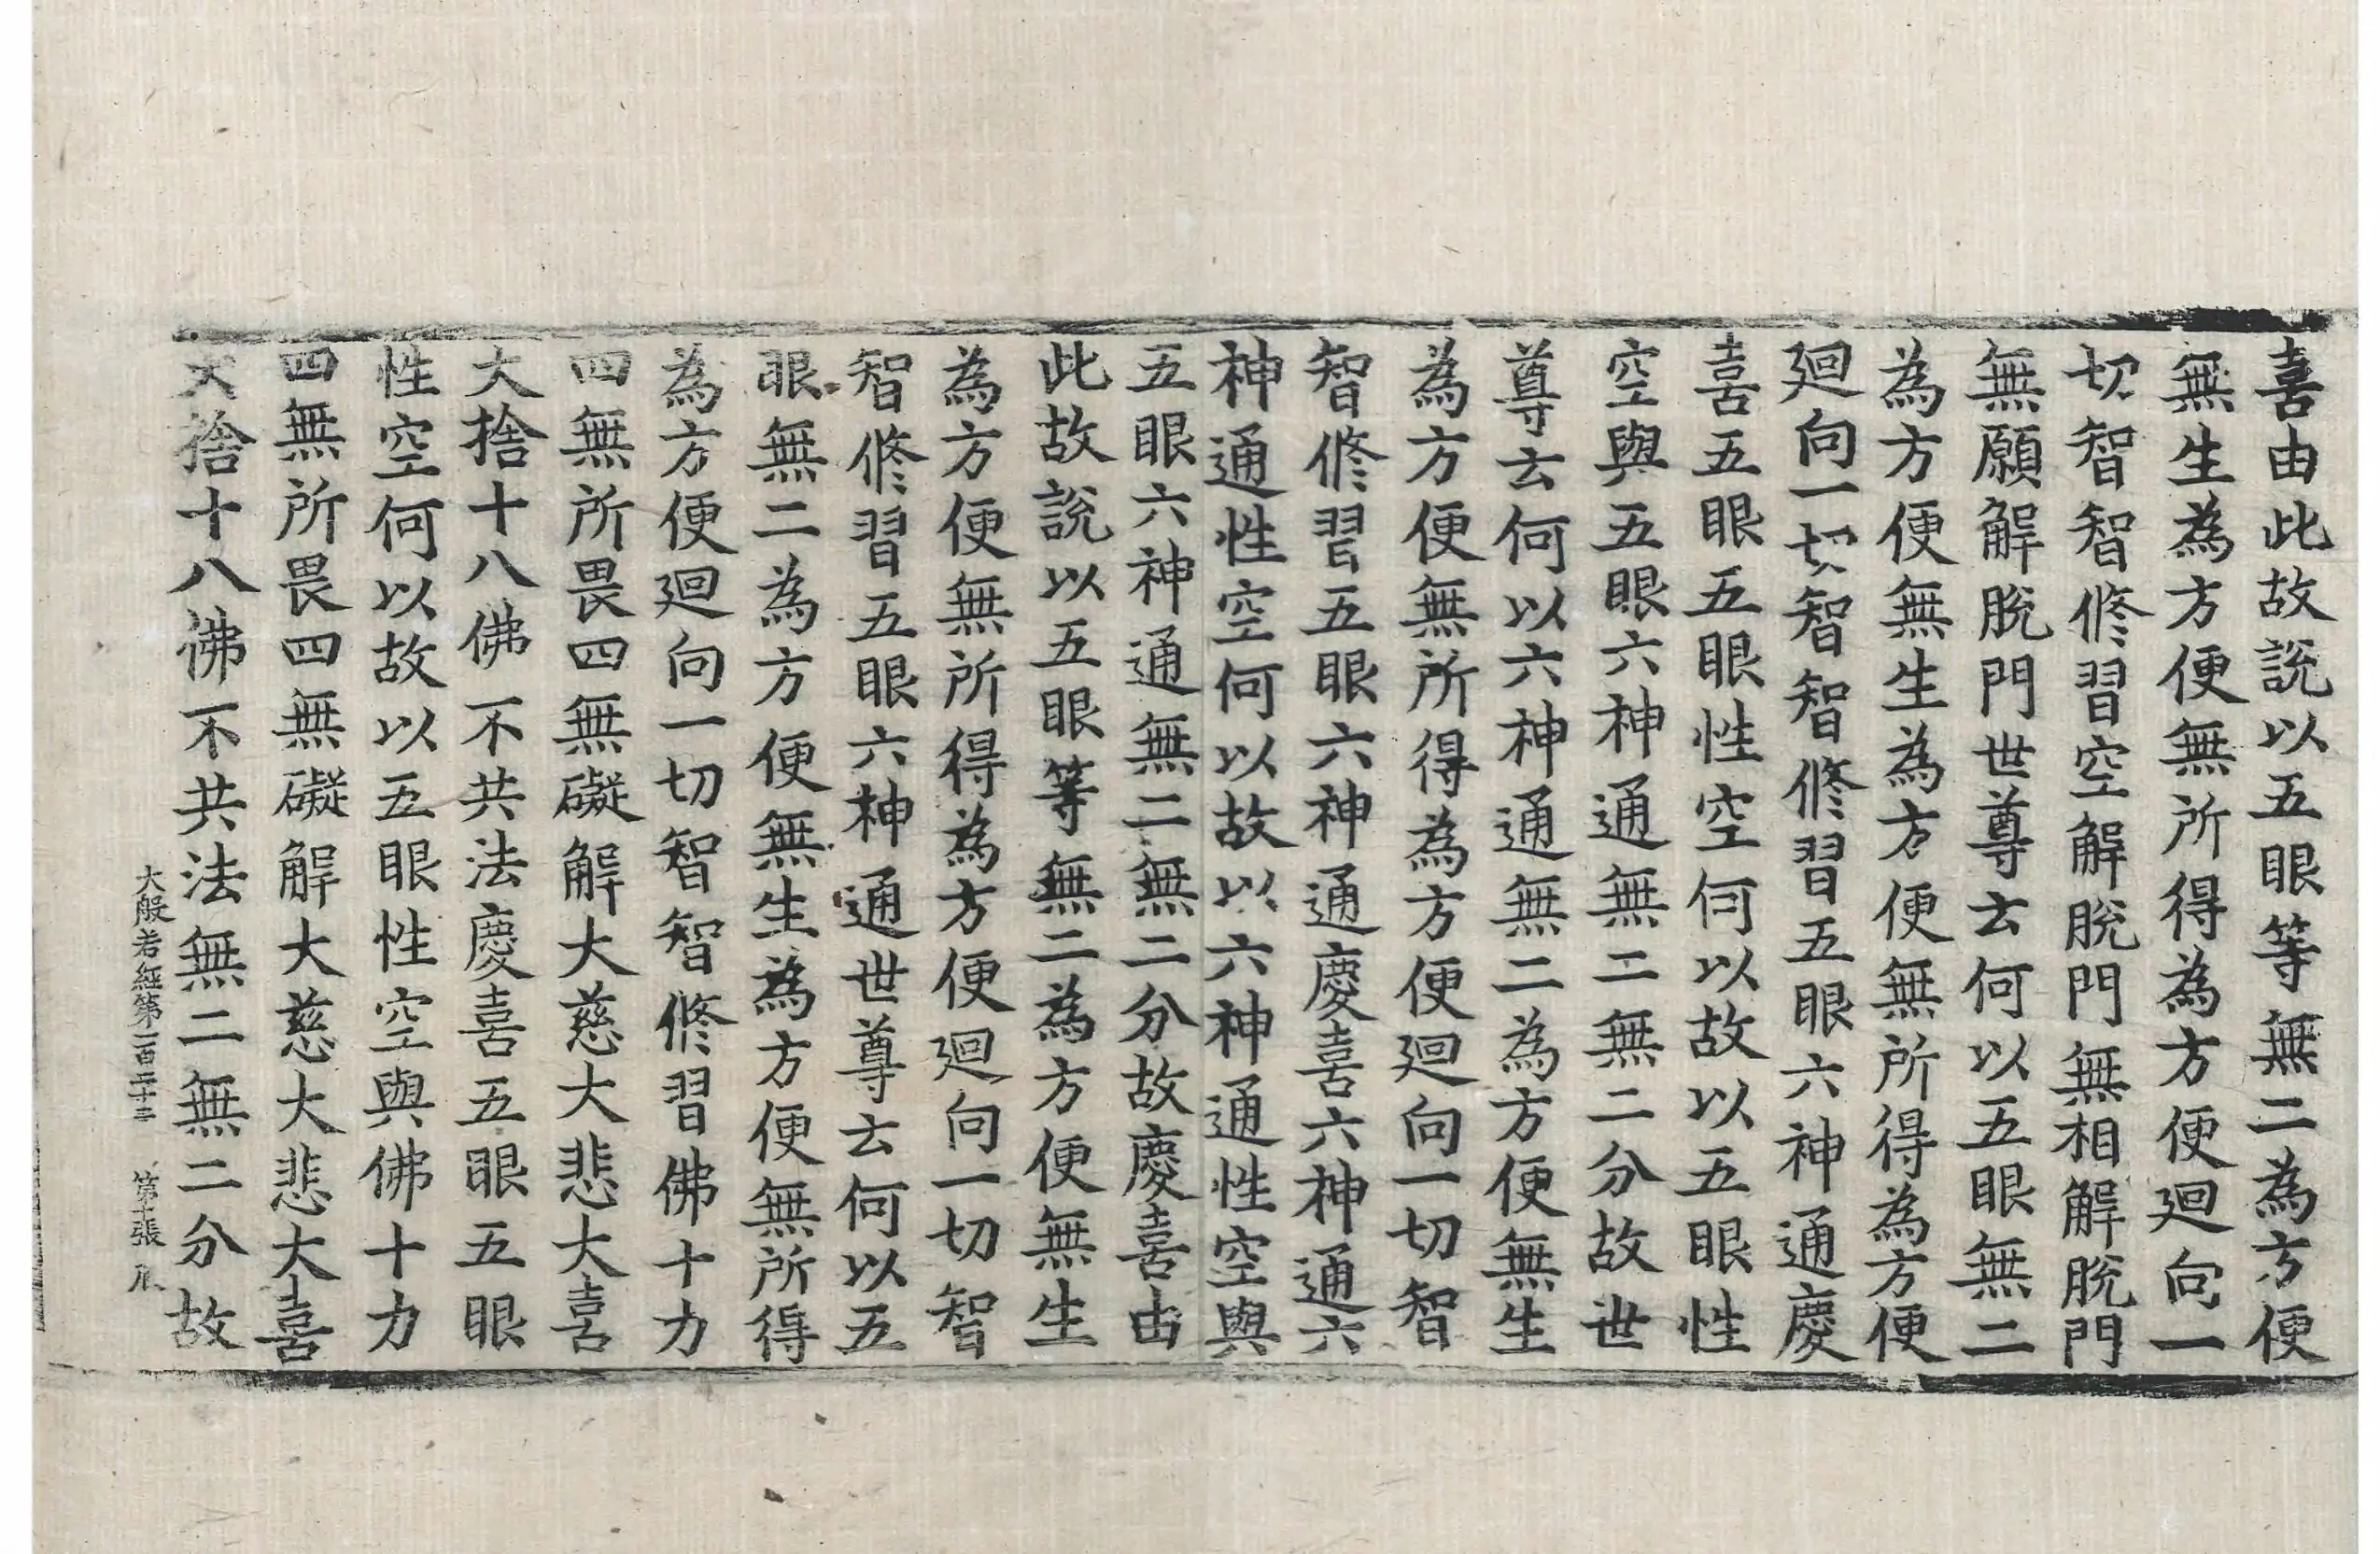 喜由此故說以五眼等無二為方便
無生為方便無所得為方便迴向一
切智智修習空解脫門無相解脫門
無願解脫門世尊云何以五眼無二
為方便無生為方便無所得為方便
迴向一切智智修習五眼六神通慶
喜五眼五眼性空何以故以五眼性
空與五眼六神通無二無二分故世
尊云何以六神通無二為方便無生
為方便無所得為方便迴向一切智
智修習五眼六神通慶喜六神通六
神通性空何以故以六神通性空與
五眼六神通無二無二分故慶喜由
此故說以五眼等無二為方便無生
為方便無所得為方便迴向一切智
智修習五眼六神通世尊云何以五
眼無二為方便無生為方便無所得
為方便迴向一切智智修習佛十力
四無所畏四無礙解大慈大悲大喜
大捨十八佛不共法慶喜五眼五眼
性空何以故以五眼性空與佛十力
四無所畏四無礙解大慈大悲大喜
大捨十八佛不共法無二無二分故
大般若經第一百二十二 第十張